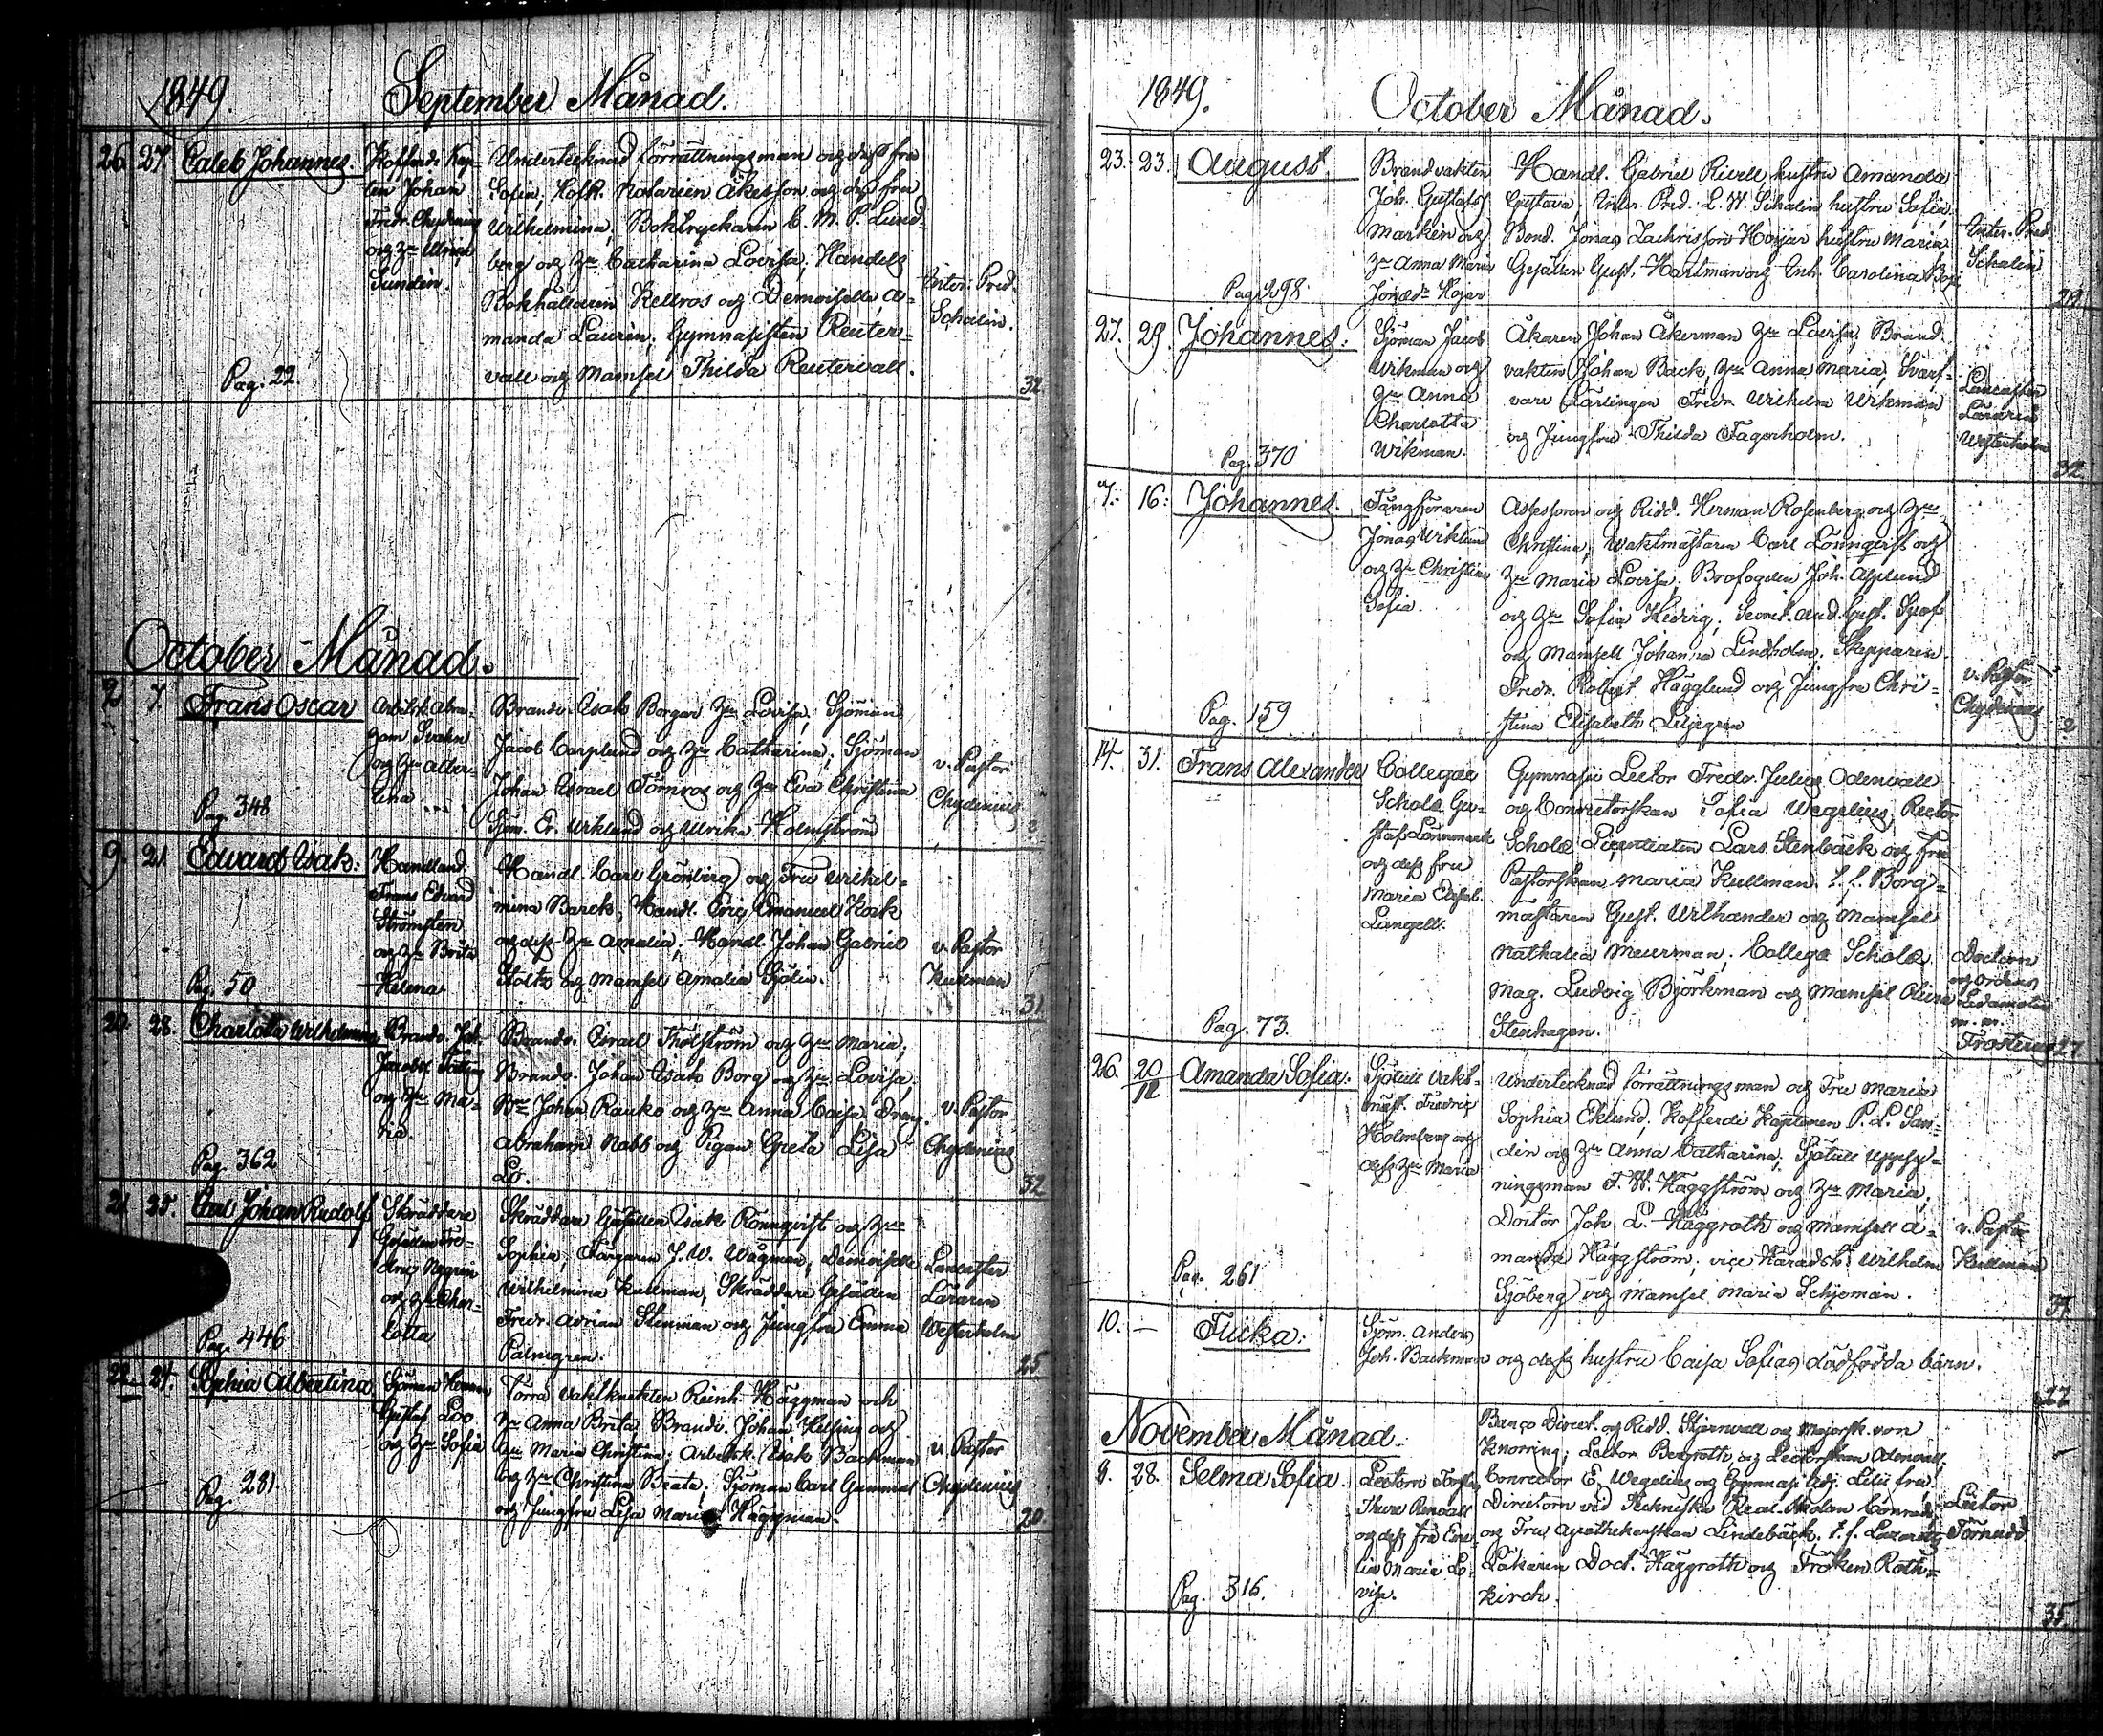 1849. September Månad.
26. 27. Caleb Johannes.
Kofferdi Kap-
ten Johan
Fredr. Chydenius
och Hu Ulrica
Sundén.
Undertecknad förrättningsman och dess fru
Sofia, Hofr. Notarien Åkesson och dess fru
Wilhelmina, Boktryckaren C. M. P. Lund-
berg och Hu Catharina Lovisa, Handels
Bokhållaren Kellros och Demoiselle A-
manda Laurén, Gymnasisten Reuter-
vall och Mamsel Thilda Reutervall.
Inter. Pred.
Schalin.
Pag. 22.
32
October Månad.
2 7. Frans Oscar
Arbetsk. Abra-
ham Svahn
och Hu Alber-
tina
Brandv. Isak Borgar Hu Lovisa, Sjöman
Jacob Carplund och Hu Catharina, Sjöman
Johan Israel Törnros och Hu Eva Christina
Sjöm. Er. Wiklund och Ulrika Holmström
v. Pastor
Chydenius
Pag. 348
9. 21 Edvard Isak.
Handland.
Frans Edvard
Strömsten
och Hu Brita
Helena
Handl. Carl Grönberg och Fru Wilhel-
mina Barck, Handl. Eric Emanuel Kock
och dess Hu Amalia, Handl. Johan Gabriel
Stoltz och Mamsel Amalia Sjölin.
v. Pastor
Kullman
Pag. 50
31
20. 28. Charlotta Wilhelmina
Brandv. Joh.
Jacobs.
och Hu Ma-
ria.
Brandv. Israel Thölström och Hu Maria,
Brandv. Johan Isak Borg och Hu Lovisa,
Johan Rauko och Hu Anna Caisa Dräng.
Abraham Nabb och Pigan Greta Lisa
Lo.
v. Pastor
Chydenius
Pag. 362
32
21 25. Carl Johan Rudolf
Skräddare
Gesällen Fre-
dric Negren
och Hu Char-
lotta
Skräddare Gesällen Isak Rönnqvist och Hu
Sophia, Färgaren J. W. Wågman, Demoiselle
Wilhelmina Kullman, Skräddare Gesällen
Fredr. Adrian Stenman och Jungfru Emma
Palmgren.
Lancaster
Läraren
Westerholm
Pag. 446
25
22. 24. Sophia Albertina
Sjöman Herman
Gustaf Loo
och Hu Sofia
Förra Vaktknekten Reinh. Häggman och
Hu Anna Brita, Brandv. Johan Helsing och
Hu Maria Christina, Arbetsk. Isak Backman
och Hu Christina Beata, Sjöman Carl Gammal
och Jungfru Lisa Maria Häggman.
v. Pastor
Chydenius
Pag. 281
20
1849. October Månad.
23. 23. August.
Brandvakten
Joh. Gustafss.
Markén och
Hu Anna Maria
Jonasdr Hojar
Handl. Gabriel Rivell hustru Amanda
Gustava, Inter. Pred. L. W. Schalin hustru Sofia,
Bond. Jonas Zachrisson Hojar hustru Maria
Gesällen Gust. Hartman och Enk. Carolina
Inter. Pred.
Schalin
Pag. 298
29
27. 29. Johannes.
Sjöman Jacob
Wikman och
Hu Anna
Charlotta
Wikman.
Åkaren Johan Åkerman Hu Lovisa, Brand-
vakten Johan Back, Hu Anna Maria, Svarf-
vare Lärlingen Fredr. Wilhelm Wikman
och Jungfru Thilda Fagerholm.
Lancaster
Läraren
Westerholm
Pag. 370
32.
7. 16. Johannes.
Fångföraren
Jonas Wiklund
och Hu Christina
Sofia.
Assessoren och Ridd. Herman Rosenberg och Hu
Christina, Waktmästaren Carl Lönnqvist och
Hu Maria Lovisa, Brofogden Joh. Asplund
och Hu Sofia Hedvig, Gust.
och Mamsell Johanna Lindholm. Skepparen
Fredr. Robert Hägglund och Jungfru Chri-
stina Elisabeth Liljegren
v. Pastor
Chydenius
Pag. 159
2
14. 31. Frans Alexander
Collegae
Scholae Gu-
staf Lönnmark
och dess fru
Maria Elisab.
Langell.
Gymnasii Lector Fredr. Julius Odenvall
och Conrectorskan Sofia Wegelius, Rector
Scholae Licentiaten Lars Stenbäck och fru
Pastorskan Maria Kullman. t. f. Borg-
mästaren Gust. Wilhander och Mamsel
Nathalia Meurman, Collega Scholae
Mag. Ludvig Björkman och Mamsel
Stenhagen.
Doctorn
och Ordens
Ledamoten
m. m.
Frosterus
Pag. 73.
27
26. 20/12 Amanda Sofia.
Sjötull Vakt-
mäst. Fredric
Holmberg och
dess Hu Maria
Undertecknad förrättningsman och Fru Maria
Sophia Eklund, Kofferdi Kaptenen P. L. Sun-
din och Hu Anna Catharina, Sjötull Uppsy-
ningsman F. W. Häggström och Hu Maria,
Doctor Joh. L. Häggroth och Mamsell A-
manda Häggström, vice Häradsh. Wilhelm
Sjöberg och Mamsel Maria Schjeman.
v. Pastor
Kullman
Pag. 261
37.
10. — Flicka.
Sjöm. Anders
Joh. Backman och dess hustru Caisa Sofias dödfödda barn.
27
November Månad.
9. 28. Selma Sofia.
Lectorn
Thure Renvall
och dess fru Emi-
lia Maria Lo-
visa.
Banco Direct. och Ridd. Stjernvall och Majorsk. von
Knorring, Lector Bergroth och Lectorskan Odenvall,
Conrector E. Wegelius och Gymnasi Adj. Lilii fru,
Directorn vid Tekniska Real Skolan Conrad
och Fru Apothekarskan Lindebäck, t. f. Lazaretts
Läkaren Doct. Häggroth och Fröken Roth-
kirch.
Lector
Törnudd
Pag. 316.
35.